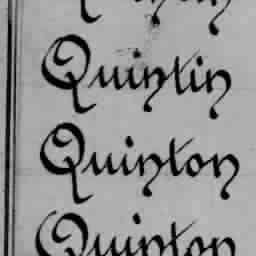 Quintin
Quinton
Quinton